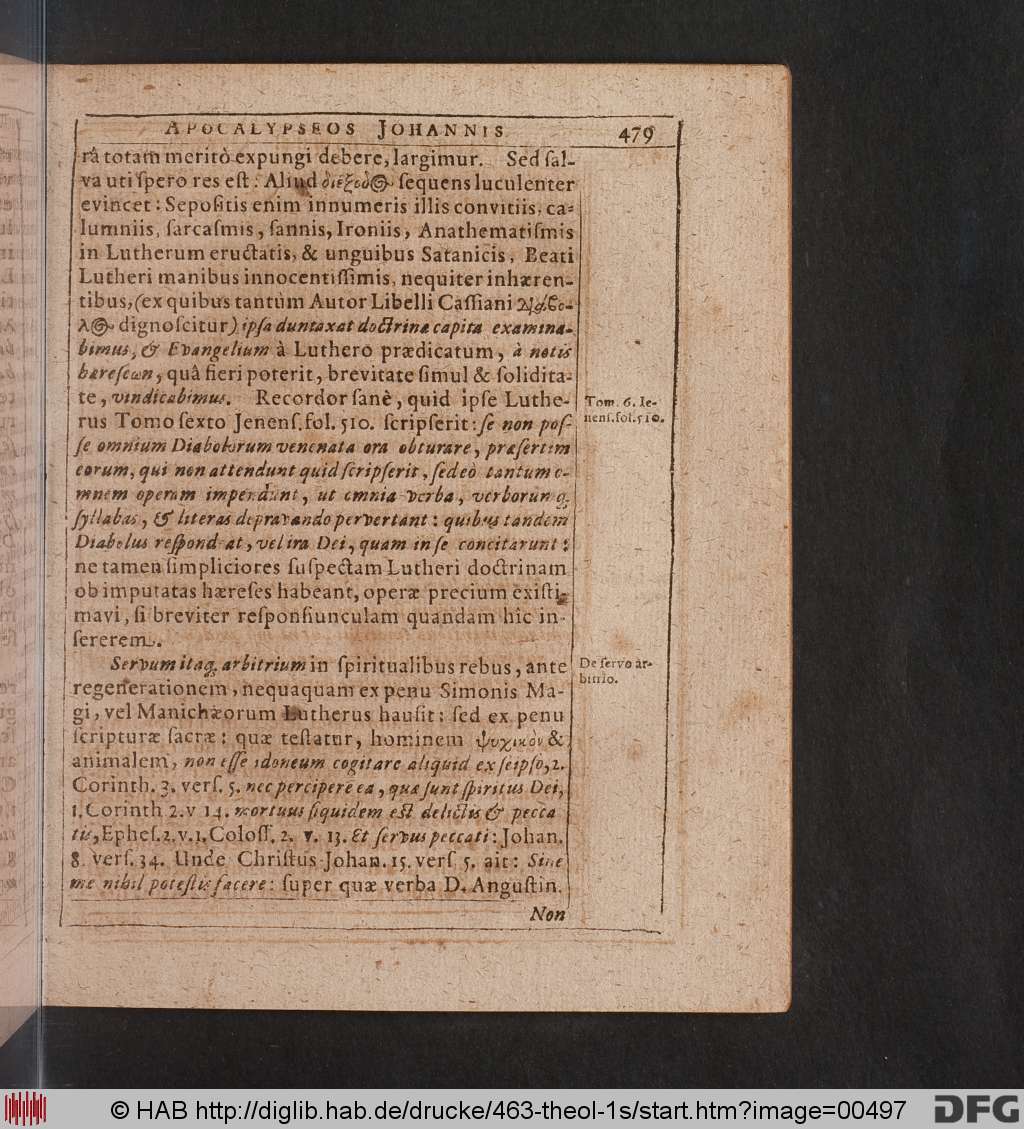 APOCALYPSEOS JOHANNIS 479
râ totam meritò expungi debere, largimur. Sed ſal-
va uti ſpero res eſt: Aliud ſequens luculenter
evincet: Sepoſitis enim innumeris illis convitiis, ca-
lumniis, ſarcaſmis, ſannis, Ironiis, Anathematiſmis
in Lutherum eructatis, & unguibus Satanicis, Beati
Lutheri manibus innocentiſſimis, nequiter inhæren-
tibus, (ex quibus tantùm Autor Libelli Caſſiani
dignoſcitur) ipſa duntaxat doctrinæ capita examina-
bimus, & Evangelium à Luthero prædicatum, à notis
hæreſeων, quâ fieri poterit, brevitate ſimul & ſolidita-
te, vindicabimus. Recordor ſanè, quid ipſe Luthe-
rus Tomo ſexto Jenenſ. fol. 510. ſcripſerit: ſe non poſ-
ſe omnium Diabolorum venenata ora obturare, præſertim
eorum, qui non attendunt quid ſcripſerit, ſed eò tantum o-
mnem operam impendunt, ut omnia verba, verborumq;
ſyllabas, & literas depravando pervertant: quibus tandem
Diabolus reſpondeat, vel ira Dei, quam in ſe concitarunt:
ne tamen ſimpliciores ſuſpectam Lutheri doctrinam
ob imputatas hæreſes habeant, operæ precium exiſti-
mavi, ſi breviter reſponſiunculam quandam hîc in-
ſererem.
Tom. 6. Ie-
nenſ. fol. 510.
Servum itaq; arbitrium in ſpiritualibus rebus, ante
regenerationem, nequaquam ex penu Simonis Ma-
gi, vel Manichæorum Lutherus hauſit: ſed ex penu
ſcripturæ ſacræ: quæ teſtatur, hominem ψυχικὸν &
animalem, non eſſe idoneum cogitare aliquid ex ſeipſo, 2.
Corinth. 3. verſ. 5. nec percipere ea, quæ ſunt ſpiritus Dei,
1. Corinth 2. v 14. mortuus ſiquidem eſt delictis & pecca
tis, Epheſ. 2. v. 1. Coloſſ. 2. v. 13. Et ſervus peccati: Johan.
8. verſ. 34. Unde Chriſtus Johan. 15. verſ 5. ait: Sine
me nihil poteſtis facere: ſuper quæ verba D. Anguſtin.
De ſervo ar-
bitrio.
Non
© HAB http://diglib.hab.de/drucke/463-theol-1s/start.htm?image=00497
DFG